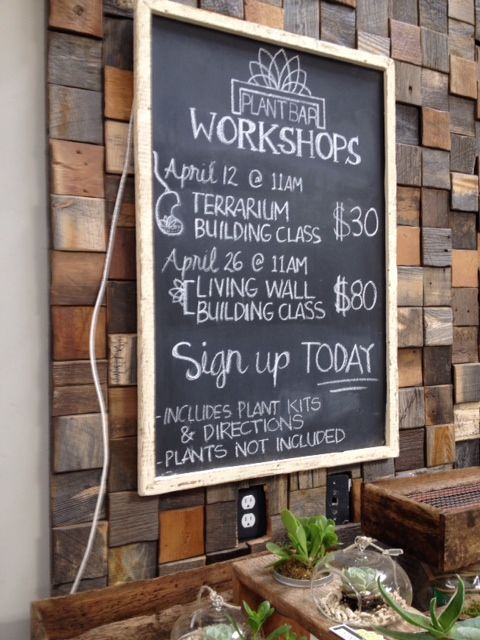 PLANT BAR
WORKSHOPS
April 12 @ 11AM
TERRARIUM
BUILDING CLASS $30
April 26 @ 11AM
LIVING WALL
BUILDING CLASS $80
Sign up TODAY
-INCLUDES PLANT KITS
& DIRECTIONS
-PLANTS NOT INCLUDED